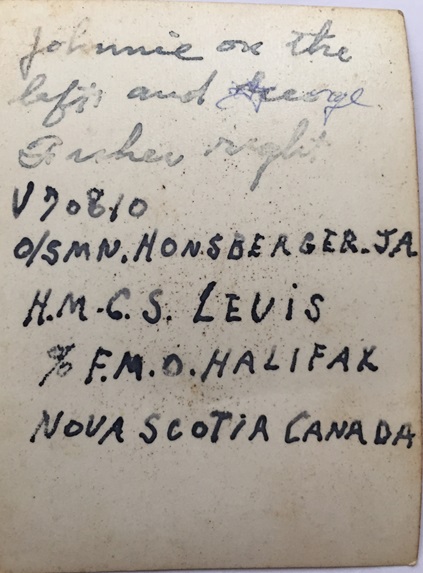 Johnnie on the
left and George
Archer right
V70810
O/SMN. HONSBERGER. JA
H.M.C.S. LEVIS
% F.M.O. HALIFAX
NOVA SCOTIA CANADA